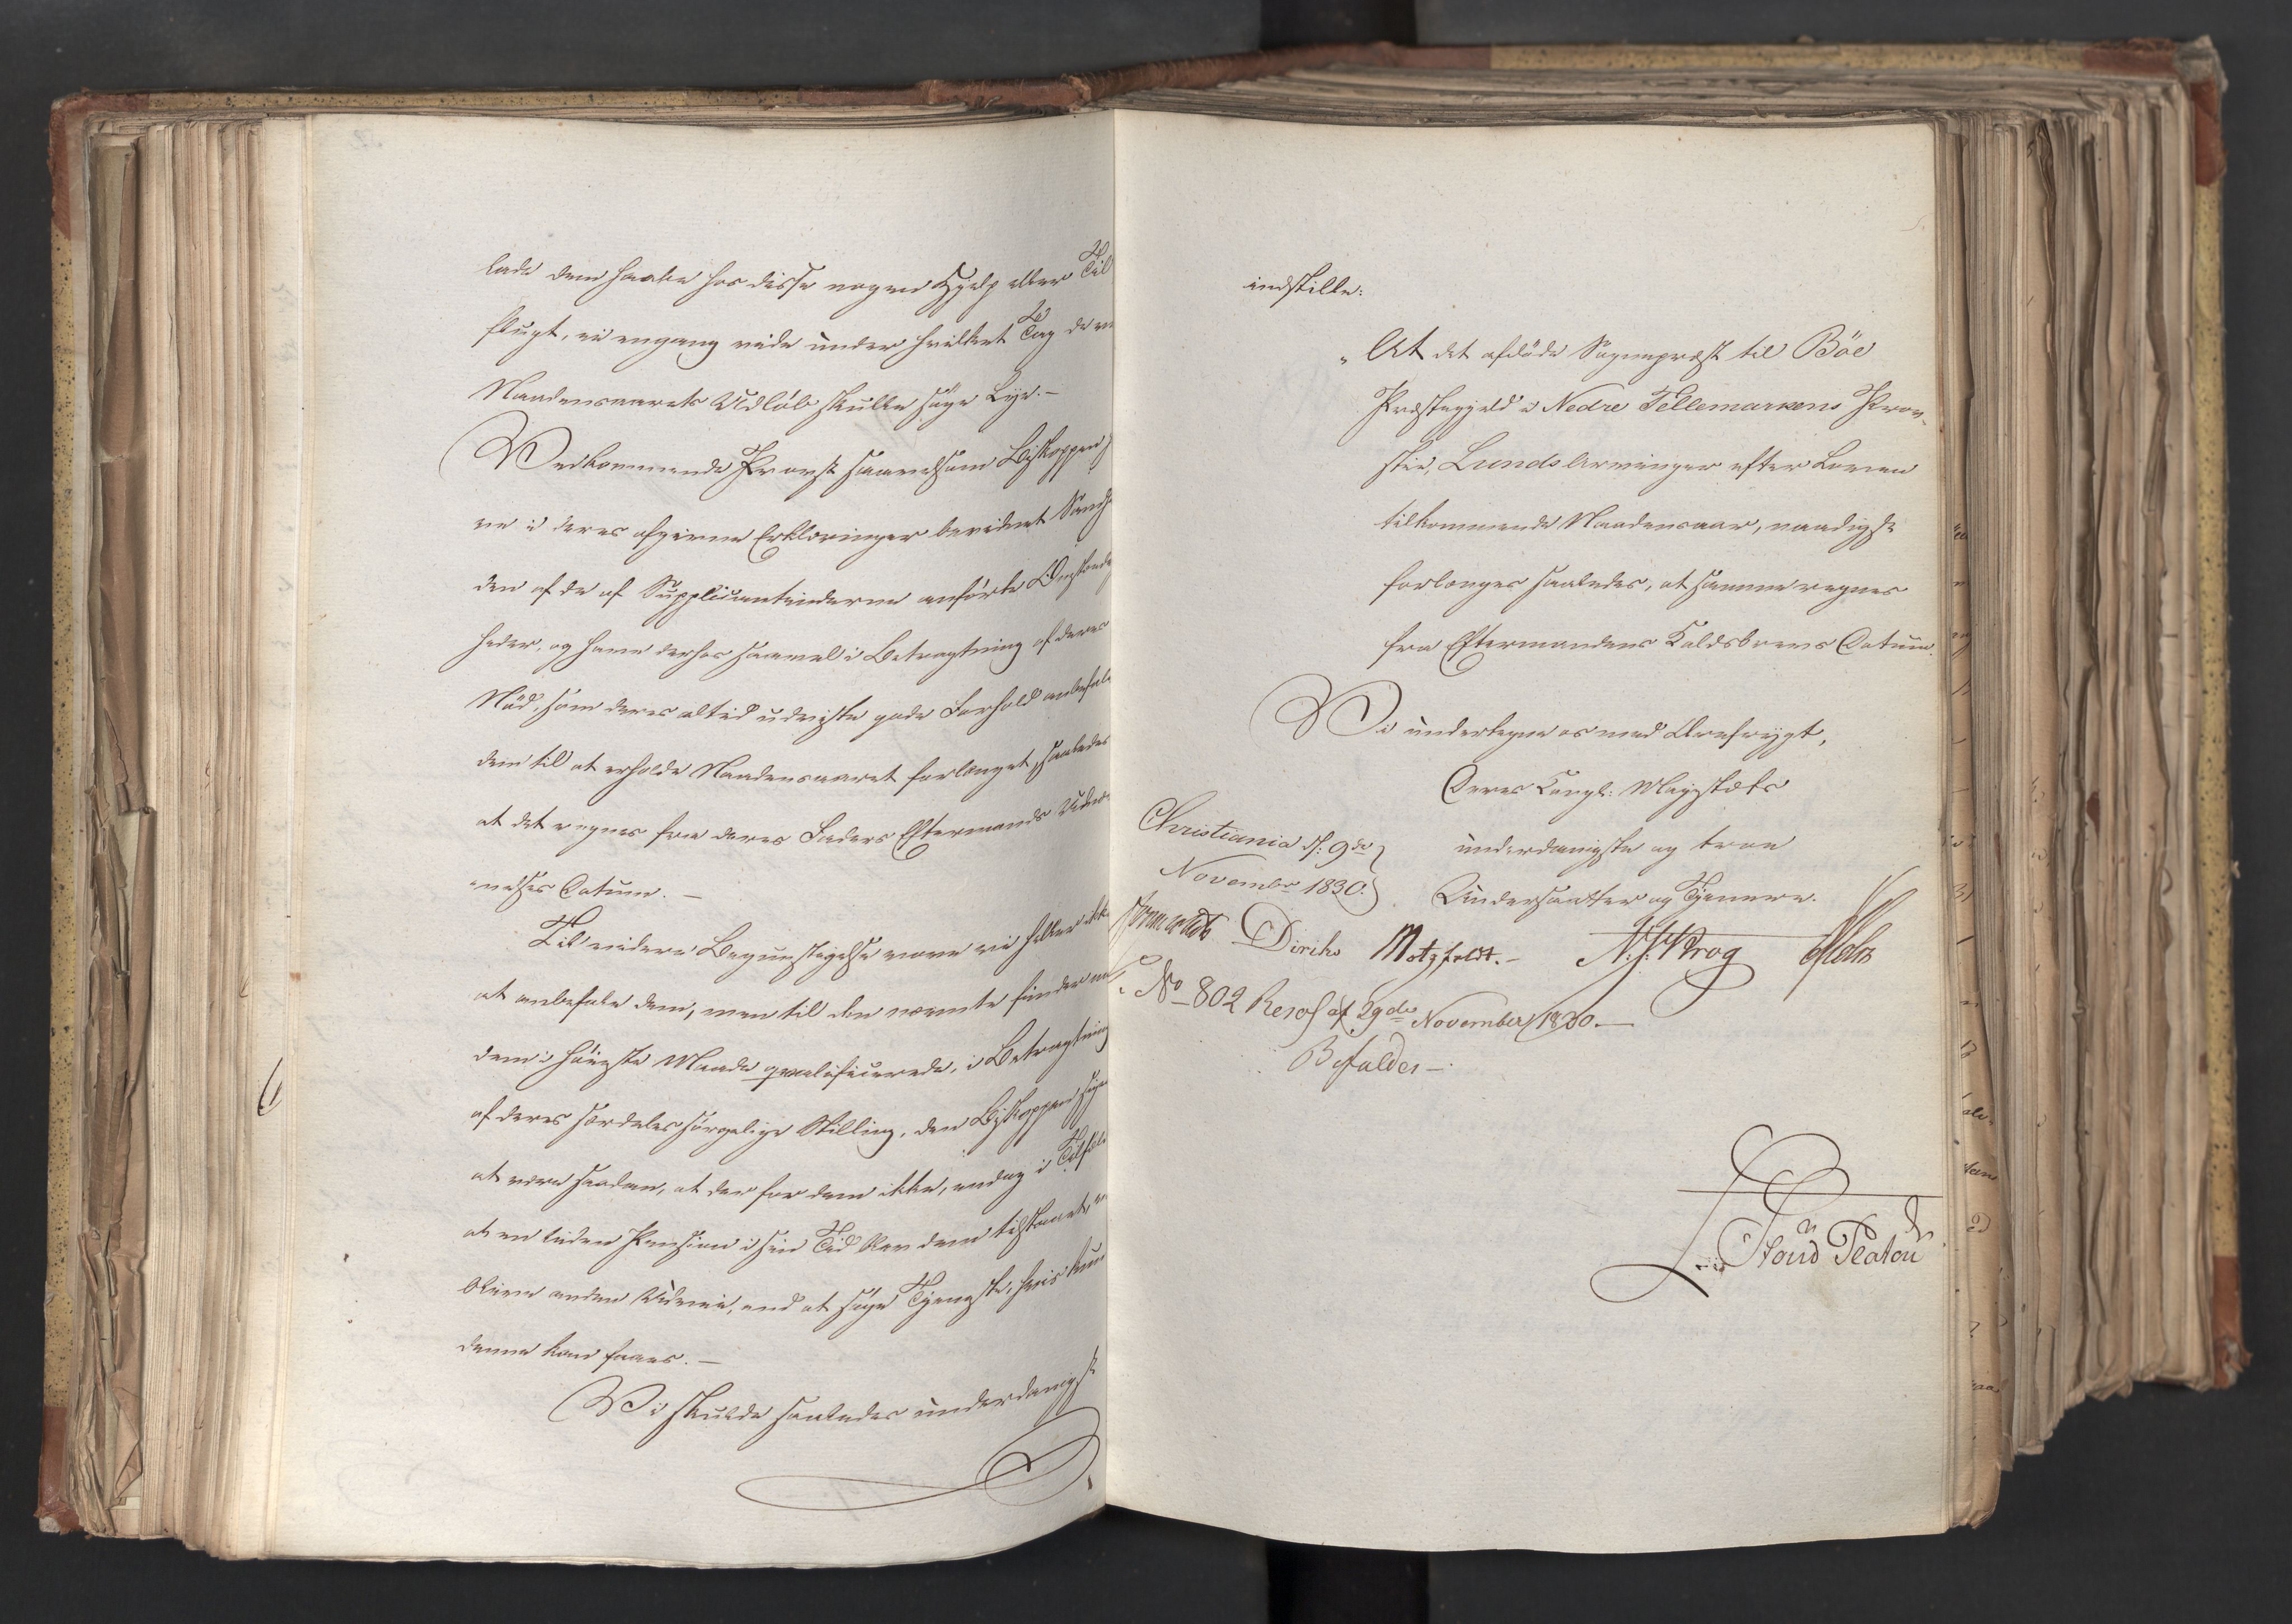 lade dem haabe hos disse nogen Hjelp eller Til
flugt, ei engang vide under hvilket Tag de ved
Naadensaarets Udløb skulle søge Lye. —
Vedkommende Provst saavelsom Biskoppen h
ve i deres afgivne Erklæringer bevidnet Sandh
den af de af Supplicantinderne anførte Omstændig
heder, og have derhos saavel i Betragtning af deres
Nød, som deres altid udviiste gode Forhold anbefalet
dem til at erholde Naadensaaret forlænget, saaledes
at det regnes fra deres Faders Eftermands Udnæv
nelses Datum. —
Til videre Begunstigelse vove vi heller ikke
at anbefale dem, men til den nævnte finder man
dem i høieste Maade qvalificerede, i Betragtning
af deres særdeles sørgelige Stilling, den Biskoppen siger
at være saadan, at der for dem ikke, endog i Tilfælde
at en liden Pension i sin Tid blev dem tilstaaet,
bliver anden Udvei, end at søge Tjeneste, hvis kun
denne kan faaes. —
Vi skulde saaledes underdanigst
indstille:
„At det afdøde Sogneprest til Böe
Præstegjeld i Nedre Tellemarkens Prov„
stie, Lunds Arvinger efter Loven
tilkommende Naadensaar, naadigst
forlænges saaledes, at samme regnes
fra Eftermandens Kaldsbrevs Datum.
Vi undertegne os med Ærefrygt,
Deres Kongl: Majestæts
Christiania d: 9de
underdanigste og troe
Novembr 1830.
Undersaatter og Tjenere.
Diriks Motzfeldt. — N. J. Krog
No 802 Resol af 29de November 1830. —
Bifaldes —
Stoud Platou